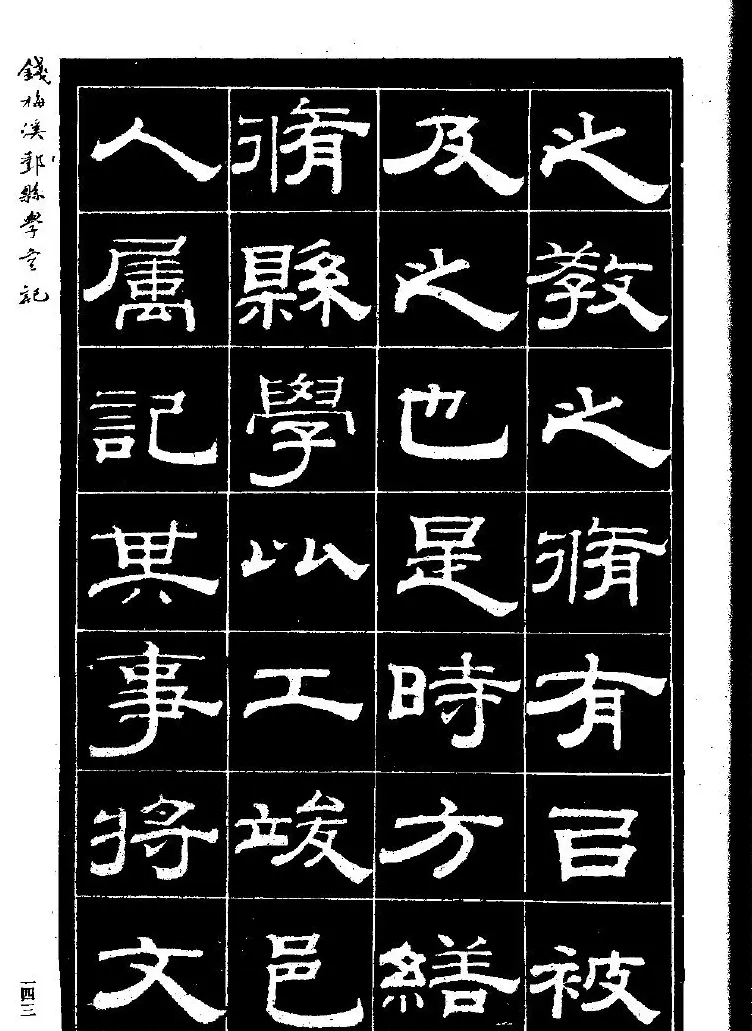 之教之脩有㠯被
及之也是時方繕
脩縣學以工竣邑
人属記其事將文
錢梅溪鄞縣學宮記
一四三